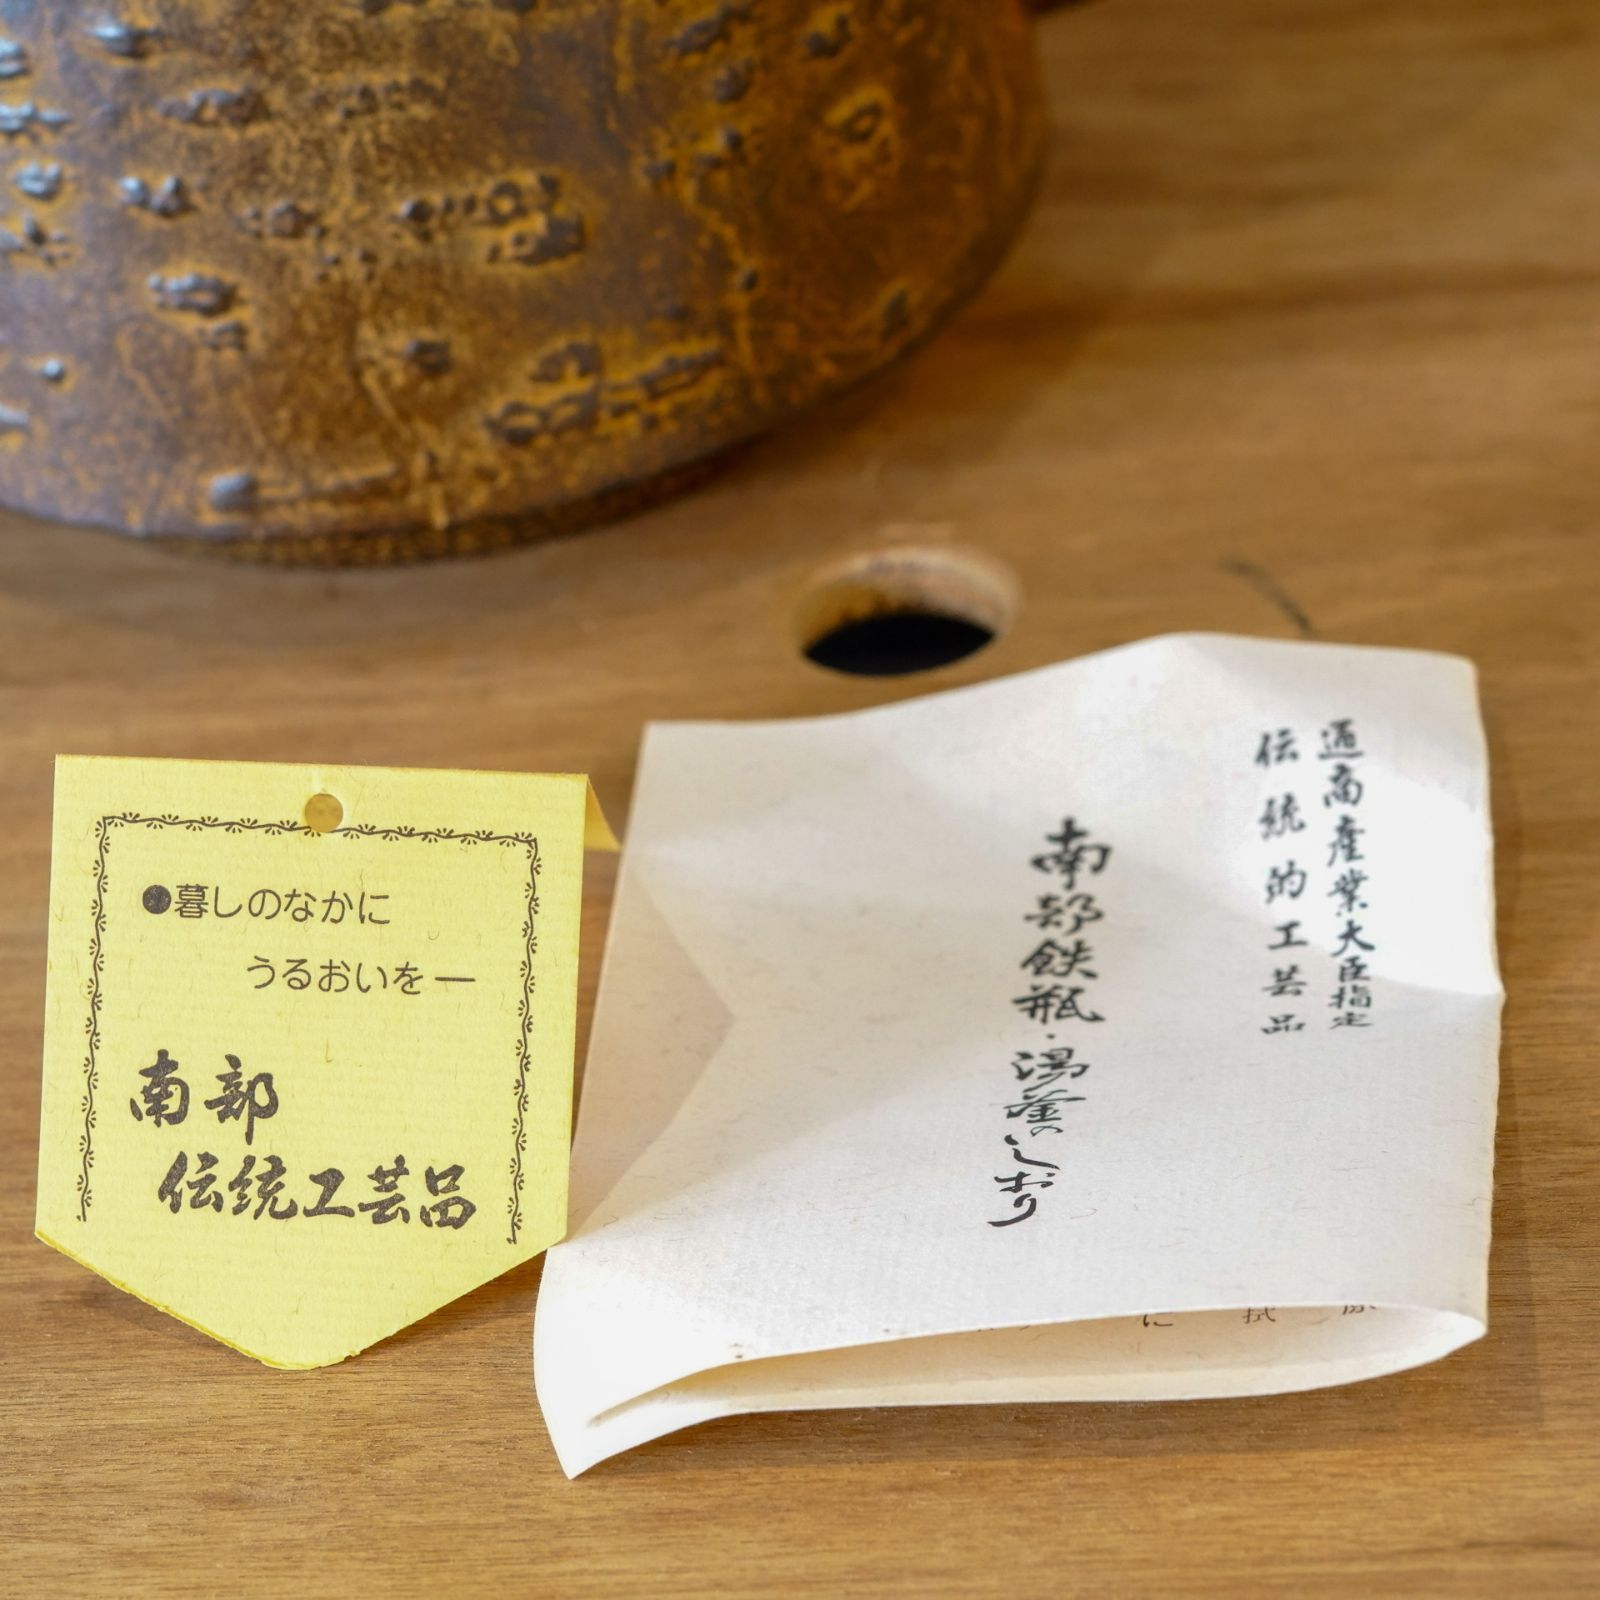 ●暮しのなかに
うるおいを―
南部
伝統工芸品
通商産業大臣指定
伝統的工芸品
南部鉄瓶・湯釜のしおり
に
拭